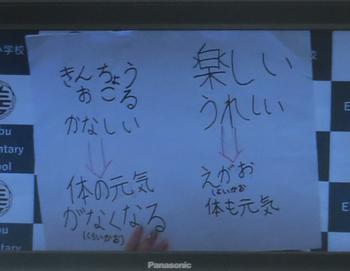 小学校
きんちょう
おこる
かなしい
体の元気
がなくなる
(くらいかお)
楽しい
うれしい
えがお
体も元気
bu
ntary
ool
E
E
Panasonic